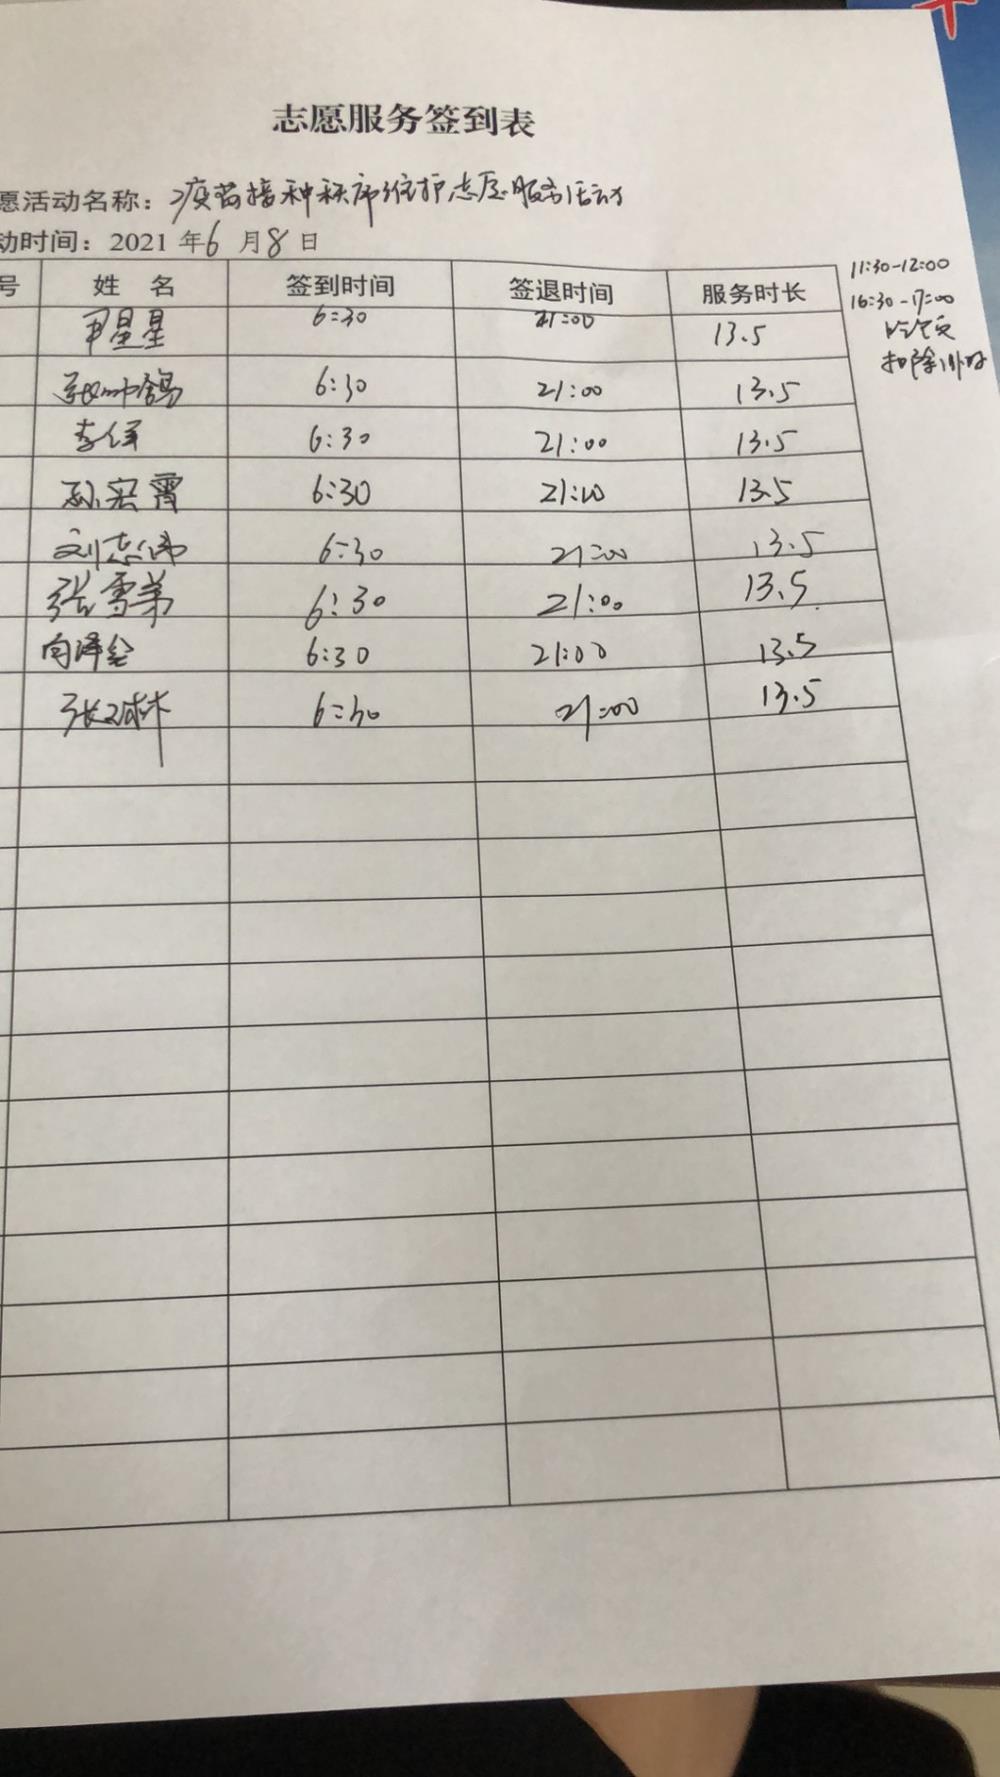 志愿服务签到表
愿活动名称：疫苗接种秩序维护志愿服务活动
动时间：2021年6月8日
11:30-12:00
16:30-17:00
吃饭
扣除1小时
号 姓 名 签到时间 签退时间 服务时长
星星 6:30 21:00 13.5
张帅鸽 6:30 21:00 13.5
李 6:30 21:00 13.5
孙宏霄 6:30 21:00 13.5
刘志伟 6:30 21:00 13.5
张雪弟 6:30 21:00 13.5
向泽 6:30 21:00 13.5
张 林 6:30 21:00 13.5